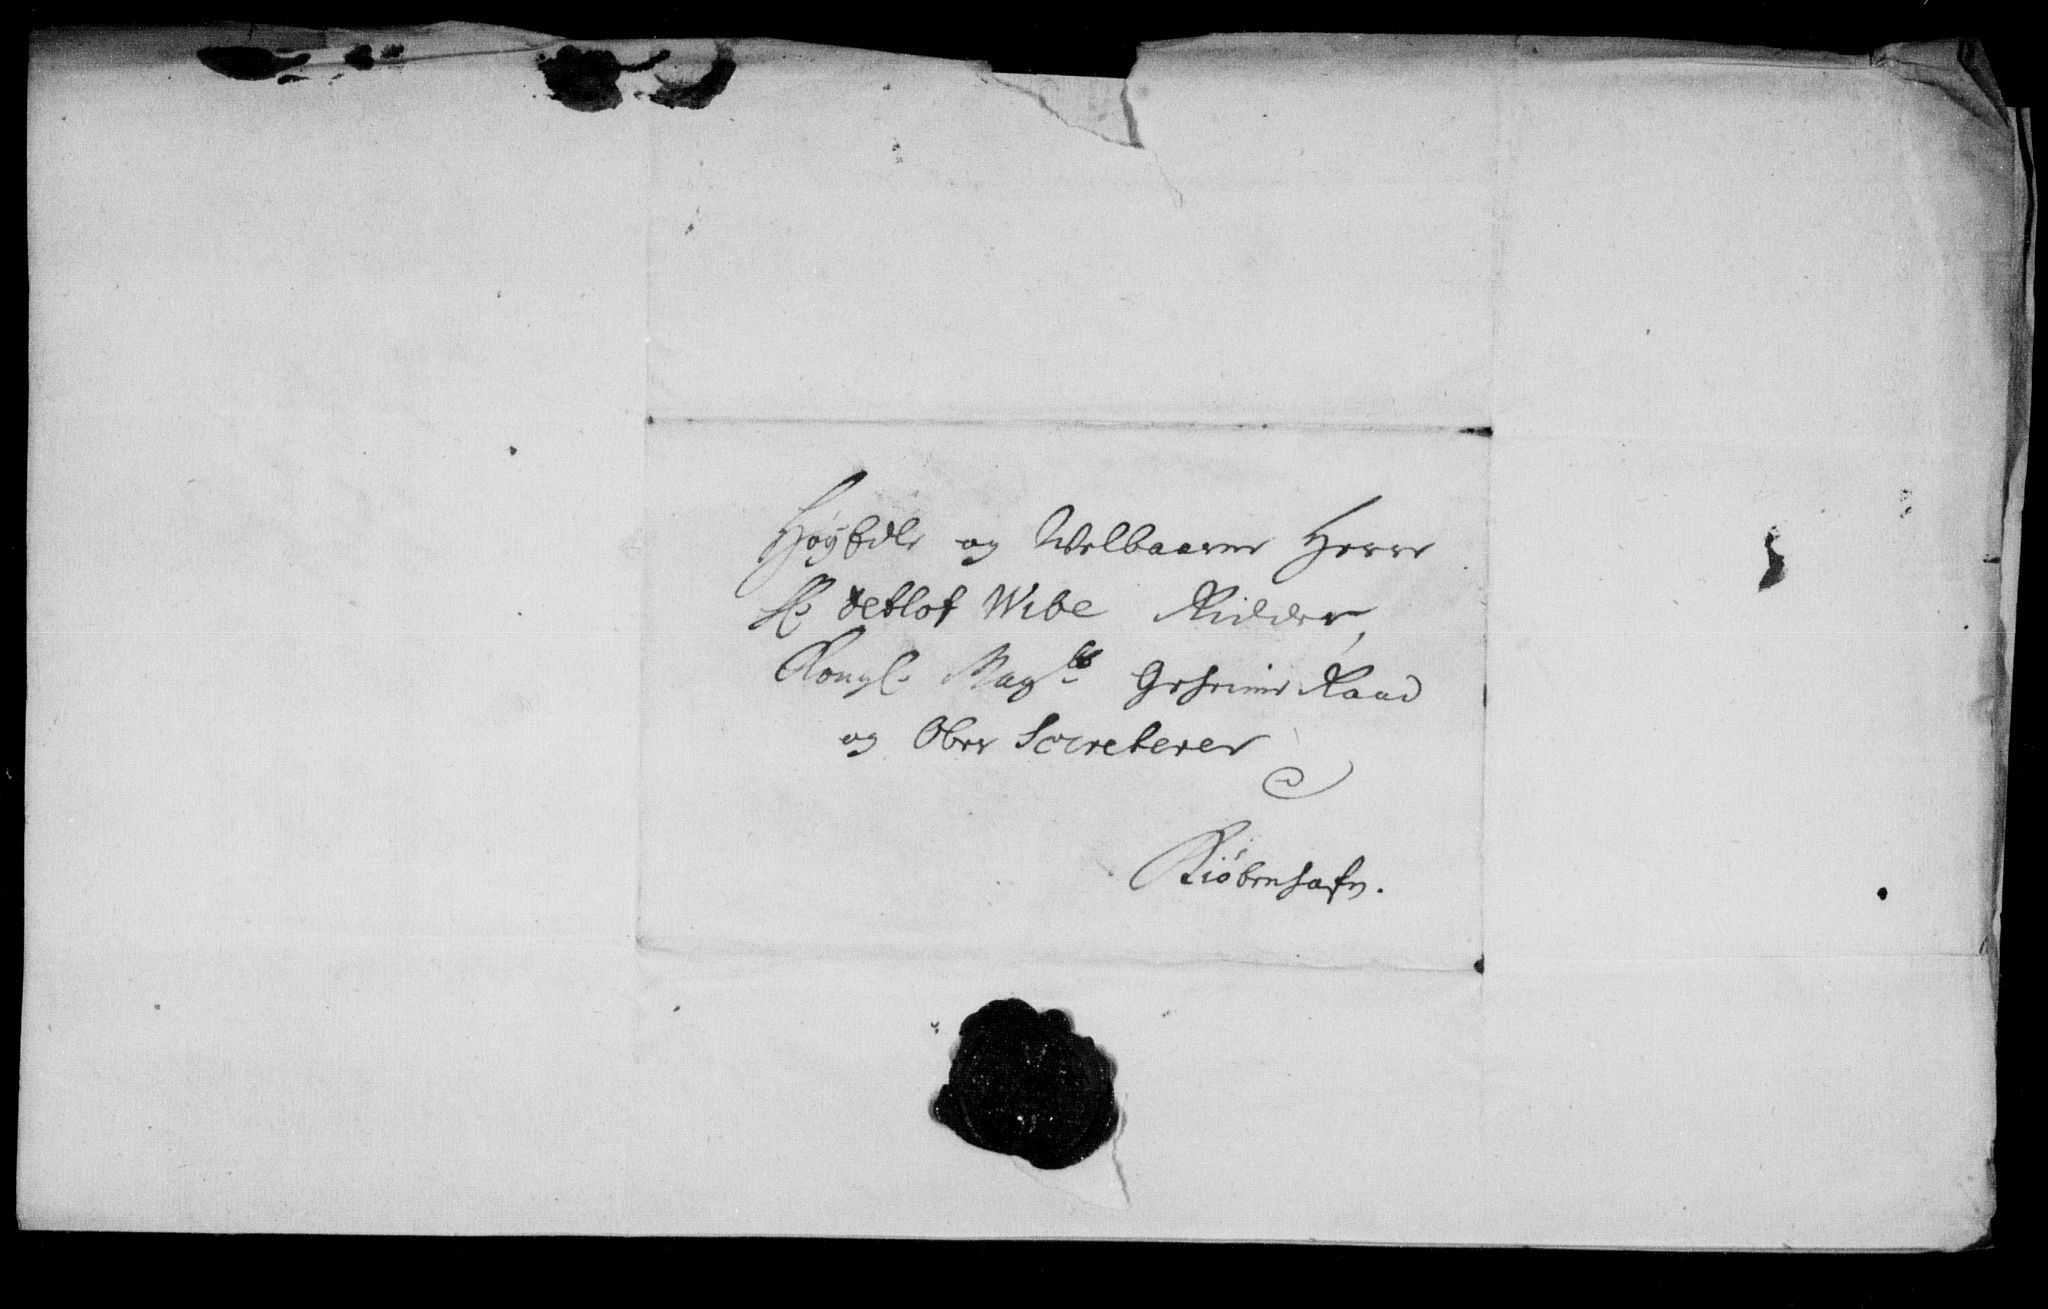 Høyedle og Welbaarne Herre
Hr Detlof Wibe Ridder,
Kongl. Mayts Geheime Raad
og Ober Secreterer
Kiøbenhafn.